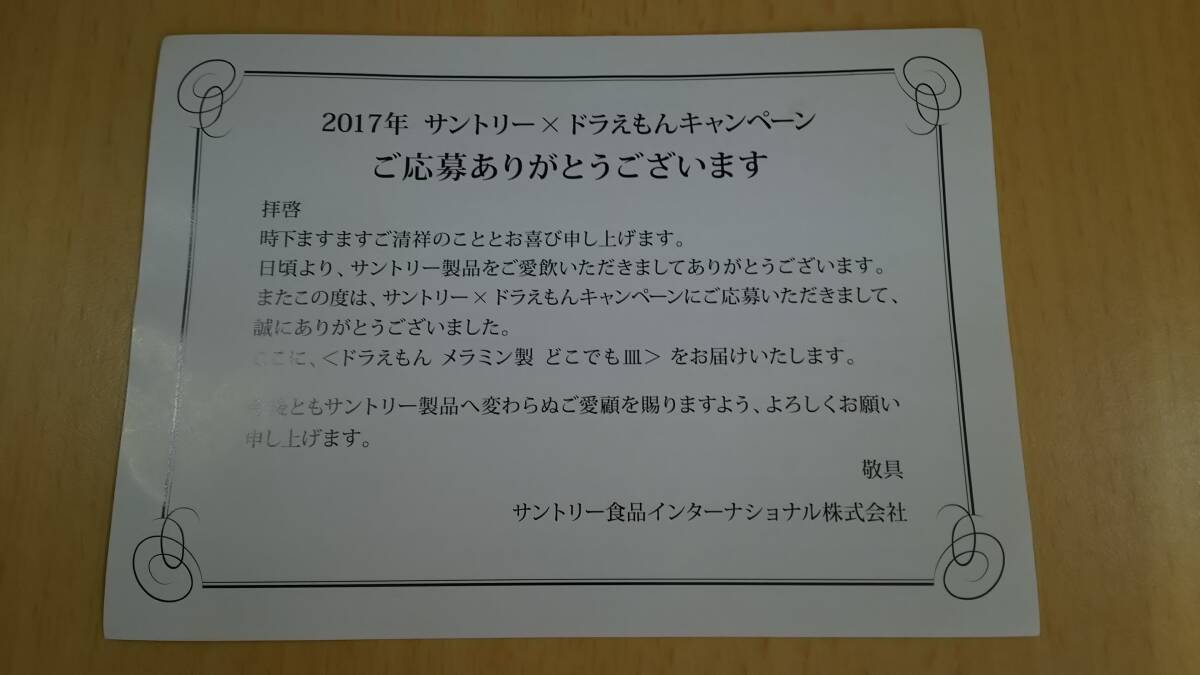 2017年 サントリー×ドラえもんキャンペーン
ご応募ありがとうございます
拝啓
時下ますますご清祥のこととお喜び申し上げます。
日頃より、サントリー製品をご愛飲いただきましてありがとうございます。
またこの度は、サントリー×ドラえもんキャンペーンにご応募いただきまして、
誠にありがとうございました。
ここに、＜ドラえもん メラミン製 どこでも皿＞ をお届けいたします。
今後ともサントリー製品へ変わらぬご愛顧を賜りますよう、よろしくお願い
申し上げます。
敬具
サントリー食品インターナショナル株式会社